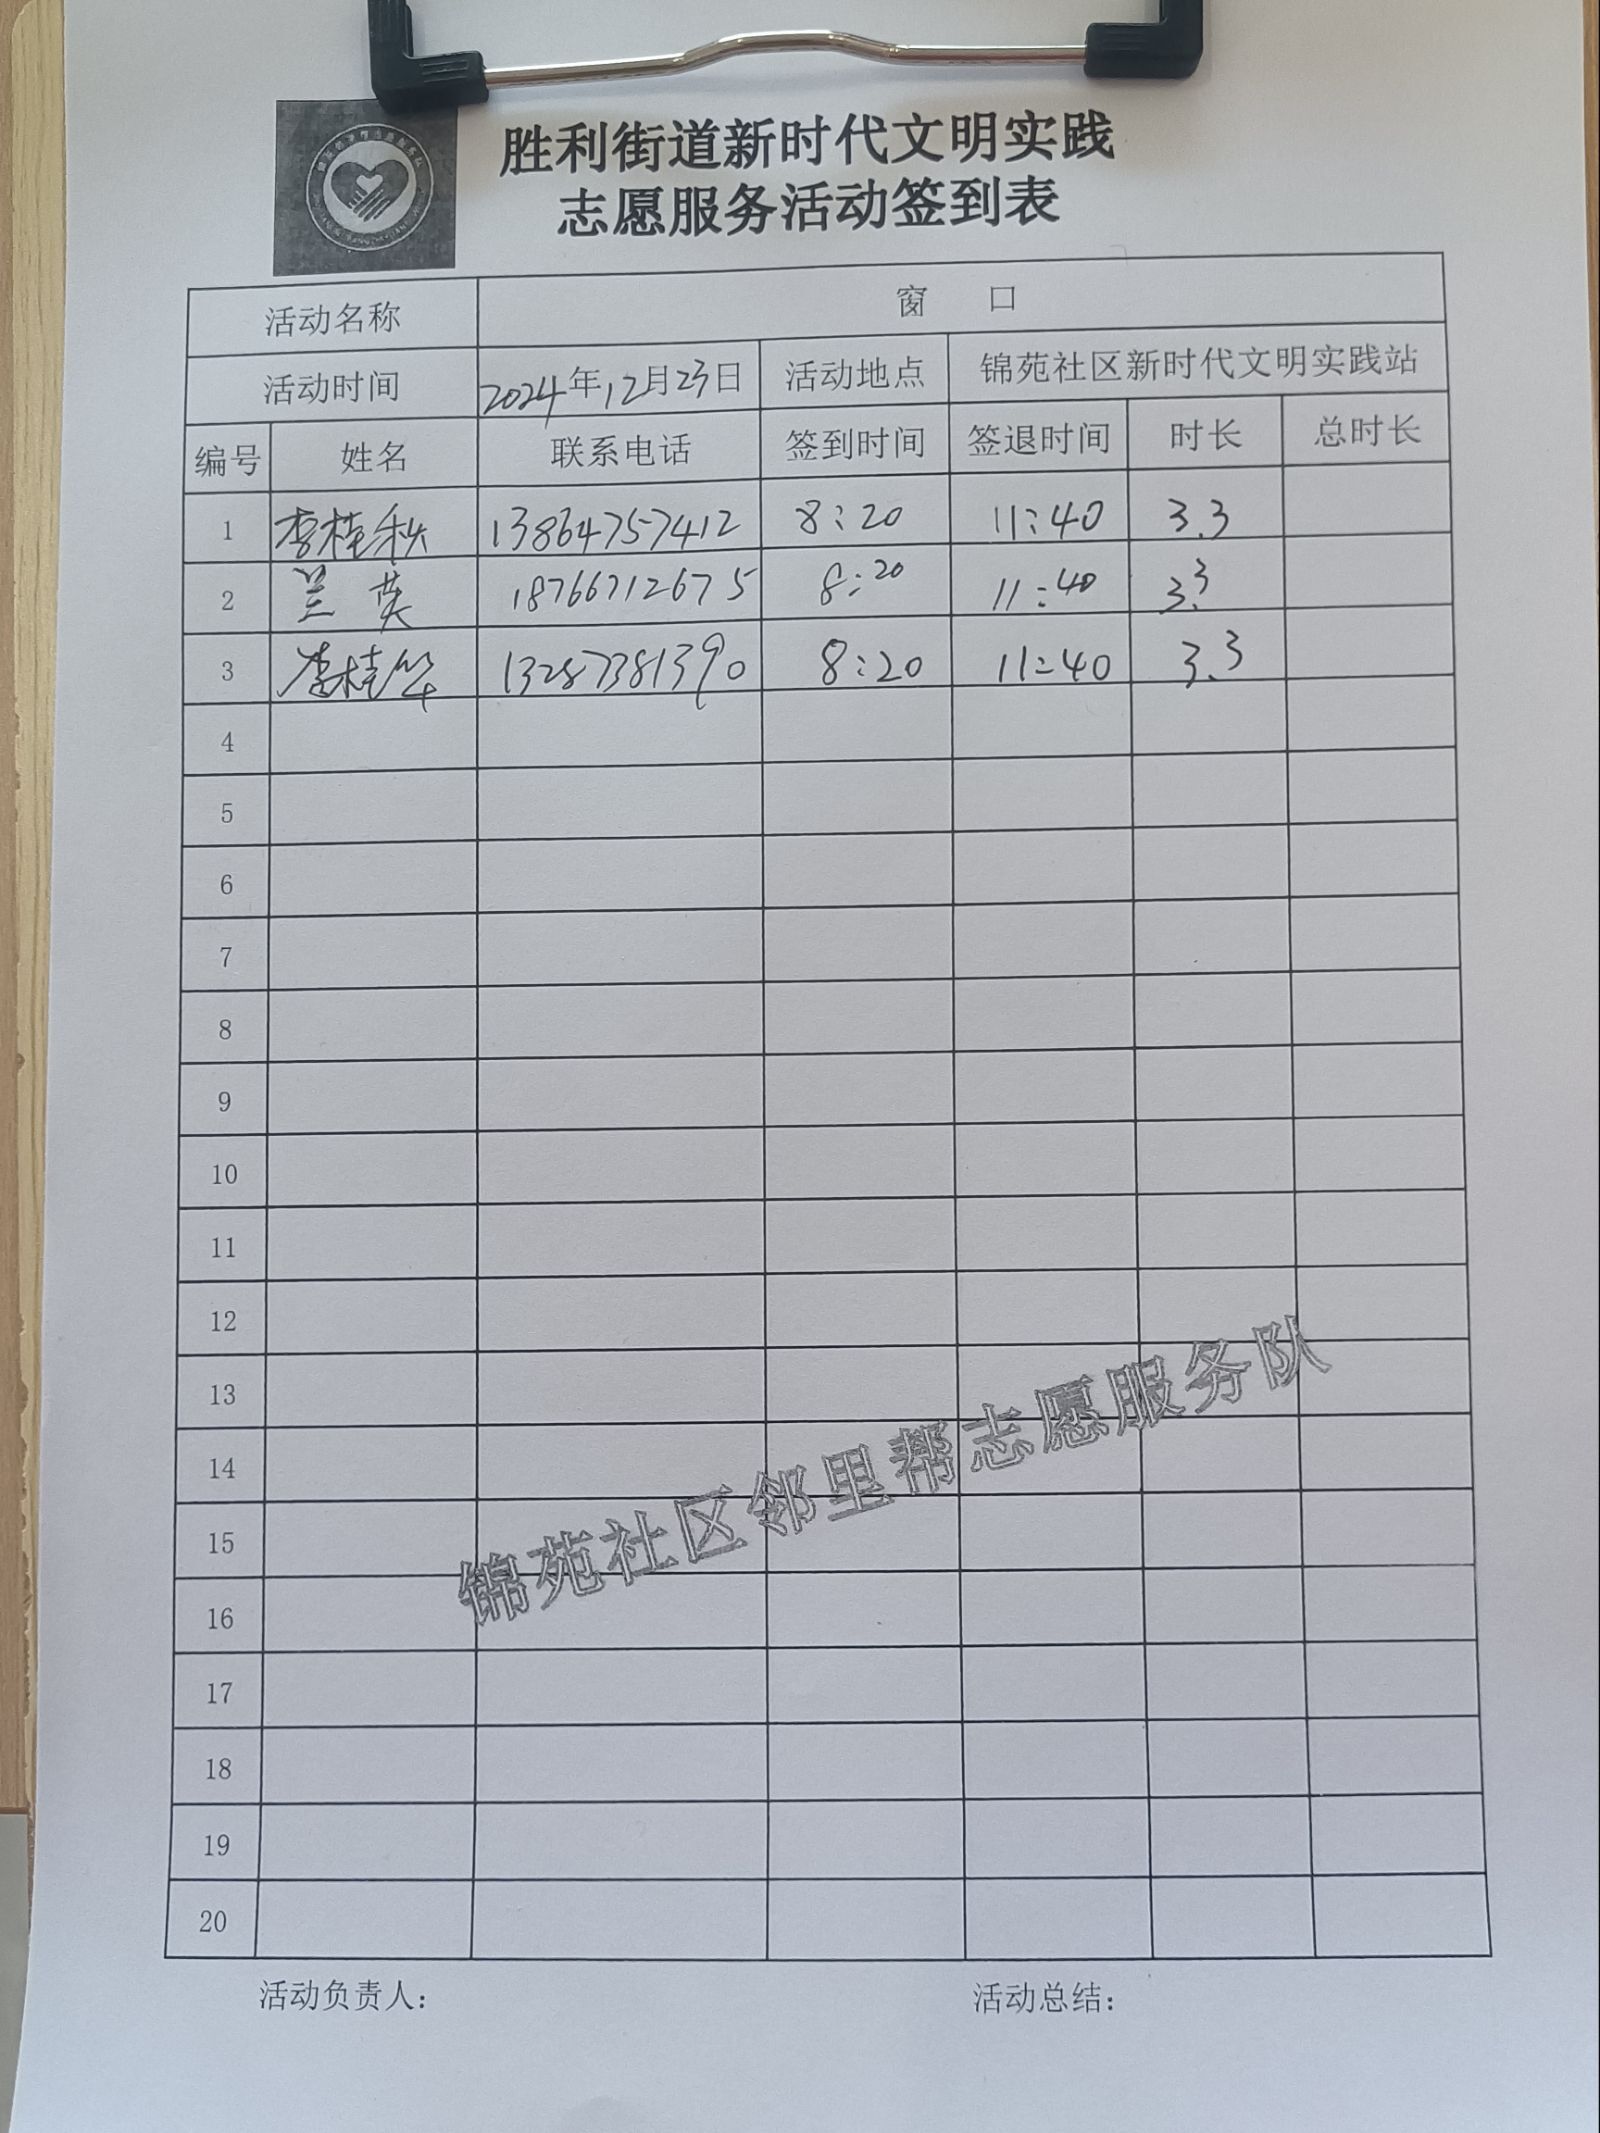 胜利街道新时代文明实践
志愿服务活动签到表
活动名称 窗 口
活动时间 2024年12月23日 活动地点 锦苑社区新时代文明实践站
编号 姓名 联系电话 签到时间 签退时间 时长 总时长
1 李桂秋 13864757412 8:20 11:40 3.3
2 兰英 18766712675 8:20 11:40 3.3
3 李桂华 13287381390 8:20 11:40 3.3
4
5
6
7
8
9
10
11
12
13
14
15
16
17
18
19
20
锦苑社区邻里帮志愿服务队
活动负责人： 活动总结：